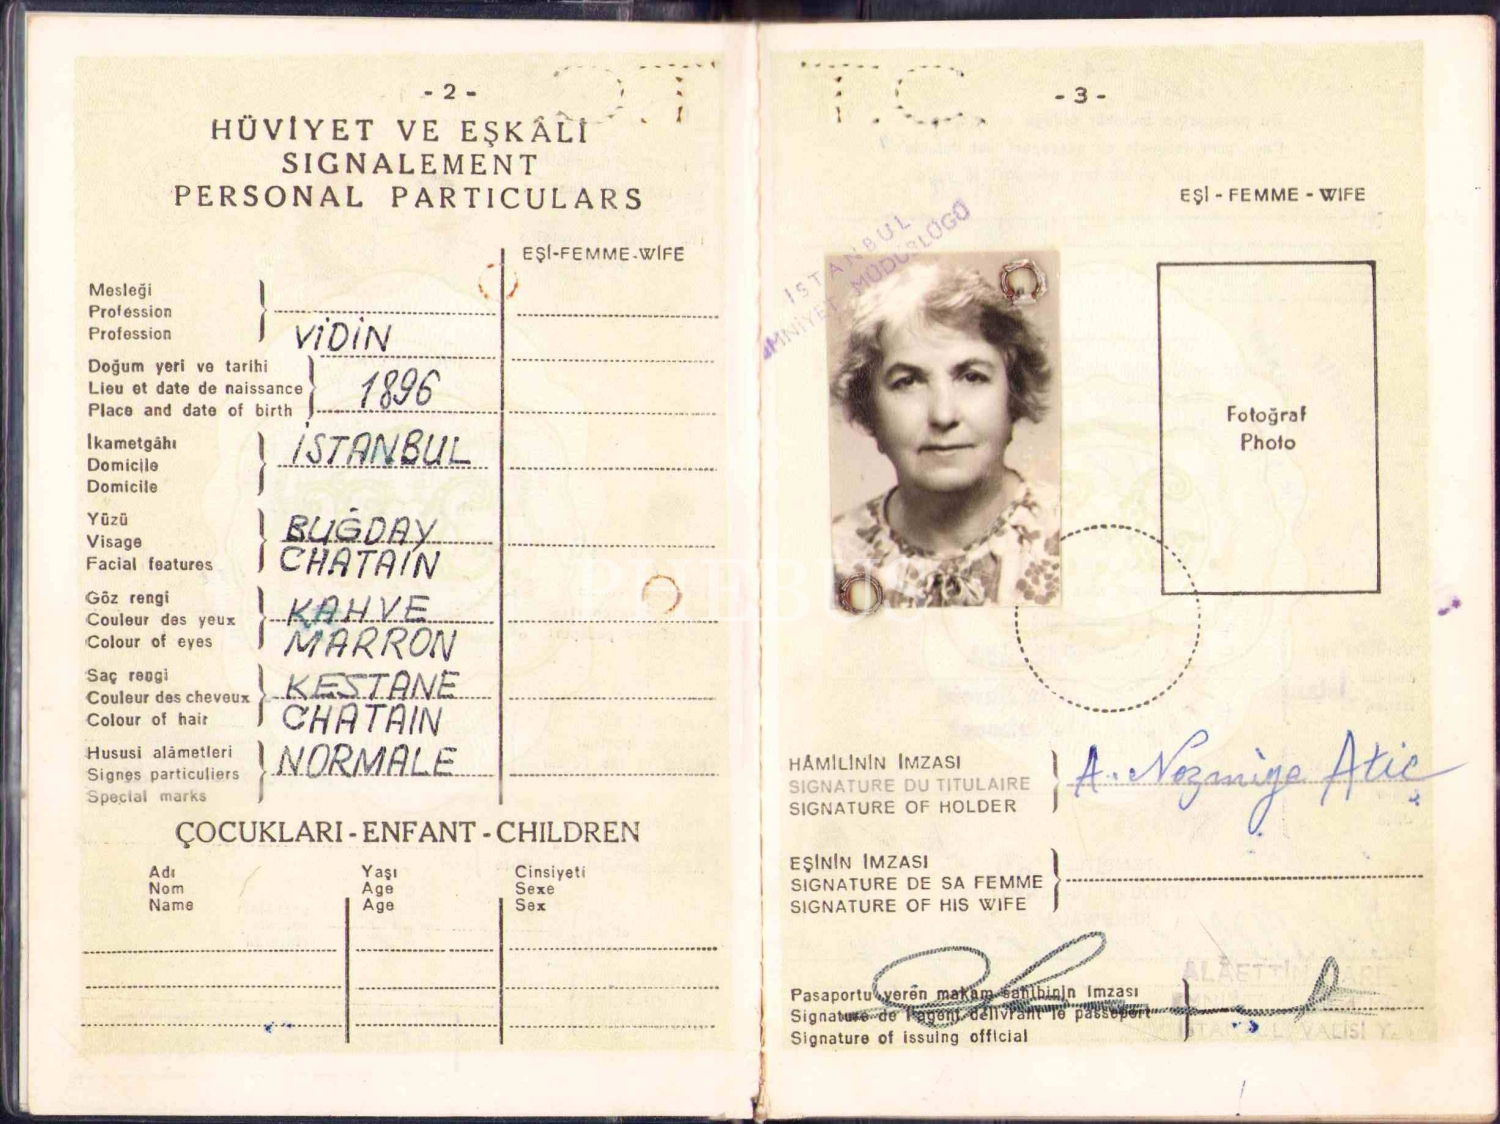 - 2 -
HÜVİYET VE EŞKÂLİ
SIGNALEMENT
PERSONAL PARTICULARS
EŞİ-FEMME-WİFE
Mesleği
Profession
Profession
Doğum yeri ve tarihi
Lieu et date de naissance
Place and date of birth
VİDİN
1896
İkametgâhı
Domicile
Domicile
İSTANBUL
Yüzü
Visage
Facial features
BUĞDAY
CHATAIN
Göz rengi
Couleur des yeux
Colour of eyes
KAHVE
MARRON
Saç rengi
Couleur des cheveux
Colour of hair
KESTANE
CHATAIN
Hususi alâmetleri
Signes particuliers
Special marks
NORMALE
ÇOCUKLARI - ENFANT - CHILDREN
Adı
Nom
Name
Yaşı
Age
Age
Cinsiyeti
Sexe
Sex
T.C.
- 3 -
EŞİ - FEMME - WIFE
İSTANBUL
EMNİYET MÜDÜRLÜĞÜ
Fotoğraf
Photo
HÂMİLİNİN İMZASI
SIGNATURE DU TITULAIRE
SIGNATURE OF HOLDER
A. Nezmiye Atiç
EŞİNİN İMZASI
SIGNATURE DE SA FEMME
SIGNATURE OF HIS WIFE
Pasaportu veren makam sahibinin İmzası
Signature de l'agent délivrant le passeport
Signature of issuing official
ALÂETTİN
İSTANBUL VALİSİ Y.